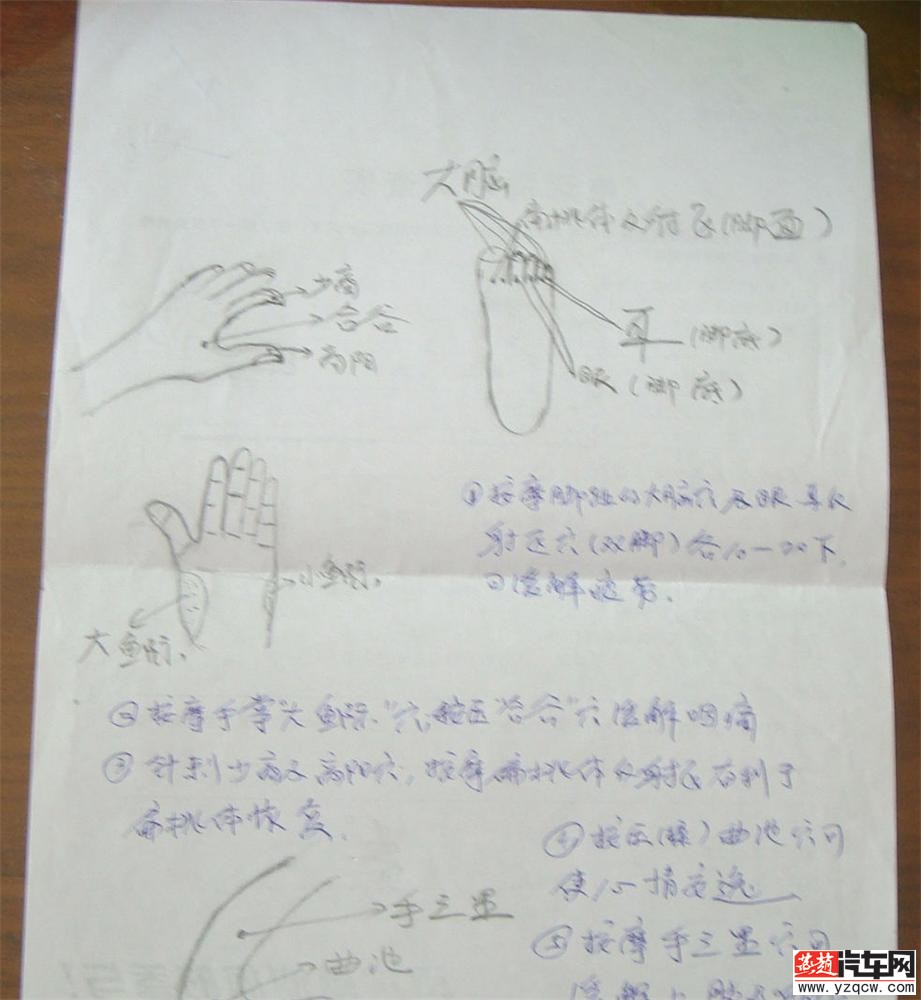 大脑
扁桃体反射区(脚面)
少商
合谷
商阳
耳(脚底)
眼(脚底)
小鱼际.
大鱼际.
①按摩脚趾的大脑穴及眼耳反
射区穴(双脚)各10一20下.
可缓解疲劳.
②按摩手掌"大鱼际"穴,按压"合谷"穴缓解咽痛
③针刺少商及商阳穴,按摩扁桃体反射区有利于
扁桃体恢复.
④按压(揉)曲池穴可
使心情安逸
手三里
曲池
⑤按摩手三里穴可
燕赵汽车网
www.yzqcw.com